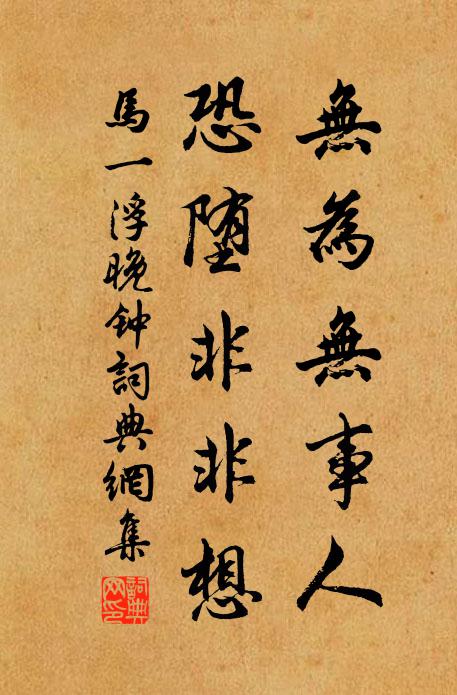 無為無事人
恐堕非非想
馬一浮晚钟詞典網集
詞典網印